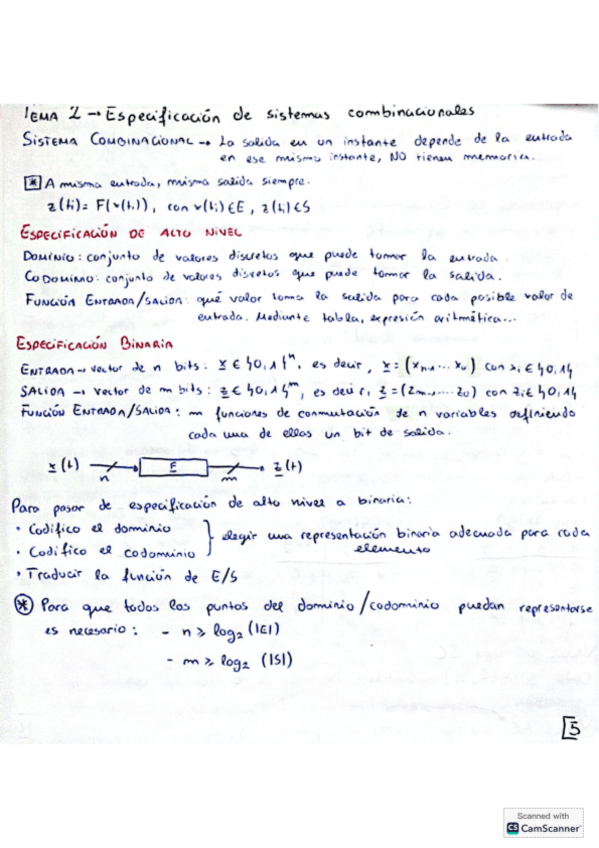 TEMA 2 → Especificación de sistemas combinacionales
SISTEMA COMBINACIONAL → La salida en un instante depende de la entrada
en ese mismo instante, NO tienen memoria.
* A misma entrada, misma salida siempre.
z(ti) = F(x(ti)), con x(ti)∈E, z(ti)∈S
ESPECIFICACIÓN DE ALTO NIVEL
DOMINIO: conjunto de valores discretos que puede tomar la entrada.
CODOMINIO: conjunto de valores discretos que puede tomar la salida.
FUNCIÓN ENTRADA/SALIDA: qué valor toma la salida para cada posible valor de
entrada. Mediante tabla, expresión aritmética...
ESPECIFICACIÓN BINARIA
ENTRADA → vector de n bits: x ∈ {0,1}ⁿ, es decir, x = (xn-1 ... x0) con xi ∈ {0,1}
SALIDA → vector de m bits: z ∈ {0,1}ᵐ, es decir, z = (zm-1 ... z0) con zi ∈ {0,1}
FUNCIÓN ENTRADA/SALIDA: m funciones de conmutación de n variables definiendo
cada una de ellas un bit de salida.
x(t) → F → z(t)
n m
Para pasar de especificación de alto nivel a binaria:
· Codifico el dominio
· Codifico el codominio } elegir una representación binaria adecuada para cada
elemento
· Traducir la función de E/S
* Para que todos los puntos del dominio/codominio puedan representarse
es necesario: - n ≥ log₂(|E|)
- m ≥ log₂(|S|)
5
Scanned with
CS CamScanner